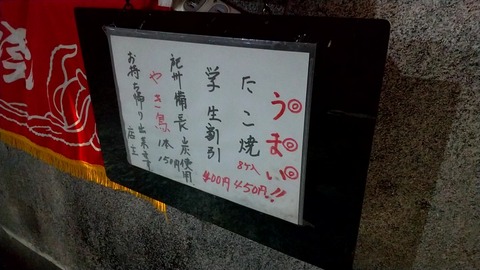 うまい!!
たこ焼 8ケ入 450円
学生割引 400円
紀州備長炭使用
やき鳥 1本 150円
お持ち帰り出来ます 店主